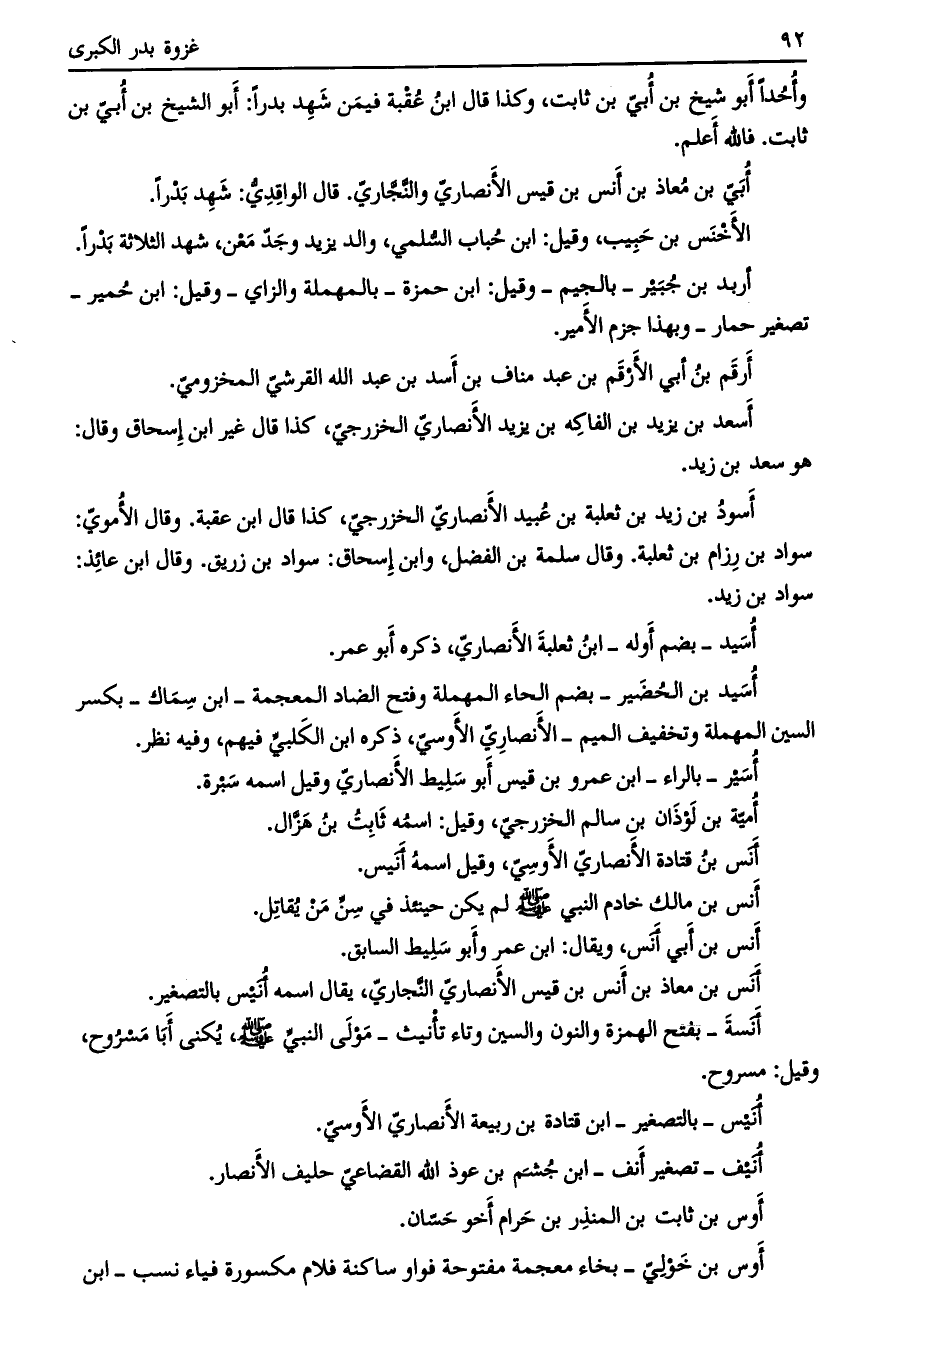 ٩٢
غزوة بدر الكبرى
وأُحُداً أَبو شيخ بن أُبيّ بن ثابت، وكذا قال ابنُ عُقْبة فيمَن شَهِد بدراً: أَبو الشيخ بن أُبيّ بن
ثابت. فالله أَعلم.
أُبَيّ بن مُعاذ بن أَنس بن قيس الأَنصاريّ والنَّجَّاريّ. قال الواقِدِيُّ: شَهِد بَدْراً.
الأَخْنَس بن حَبِيب، وقيل: ابن خُباب السُّلمي، والد يزيد وجَدّ مَعْن، شهد الثلاثة بَدْراً.
أربد بن جُبَيْر ـ بالجيم ـ وقيل: ابن حمزة ـ بالمهملة والزاي ـ وقيل: ابن حُمير ـ
تصغير حمار ـ وبهذا جزم الأَمير.
أَرقَم بنُ أبي الأَرْقَم بن عبد مناف بن أَسد بن عبد الله القرشيّ المخزوميّ.
أَسعد بن يزيد بن الفاكِه بن يزيد الأَنصاريّ الخزرجيّ، كذا قال غير ابن إِسحاق وقال:
هو سعد بن زيد.
أَسودُ بن زيد بن ثعلبة بن عُبيد الأَنصاريّ الخزرجيّ، كذا قال ابن عقبة. وقال الأُمويّ:
سواد بن رِزام بن ثعلبة. وقال سلمة بن الفضل، وابن إِسحاق: سواد بن زريق. وقال ابن عائِذ:
سواد بن زيد.
أُسَيد ـ بضم أَوله ـ ابنُ ثعلبةَ الأَنصاريّ، ذكره أَبو عمر.
أُسَيد بن الحُضَير ـ بضم الحاء المهملة وفتح الضاد المعجمة ـ ابن سِمَاك ـ بكسر
السين المهملة وتخفيف الميم ـ الأَنصارِيّ الأَوسيّ، ذكره ابن الكَلبيّ فيهم، وفيه نظر.
أُسَيْر ـ بالراء ـ ابن عمرو بن قيس أَبو سَلِيط الأَنصاريّ وقيل اسمه سَبْرة.
أُميّة بن لَوْذَان بن سالم الخزرجيّ، وقيل: اسمُه ثَابِتُ بنُ هَزَّال.
أَنَس بنُ قتادة الأَنصاريّ الأَوسِيّ، وقيل اسمهُ أُنَيس.
أَنس بن مالك خادم النبي ﷺ لم يكن حينئذ في سِنِّ مَنْ يُقاتِل.
أَنس بن أَبي أَنَس، ويقال: ابن عمر وأَبو سَلِيط السابق.
أَنَس بن معاذ بن أَنس بن قيس الأَنصاريّ النَّجاريّ، يقال اسمه أُنَيْس بالتصغير.
أَنَسةَ ـ بفتح الهمزة والنون والسين وتاء تأْنيث ـ مَوْلَى النبيِّ ﷺ، يُكنى أَبَا مَسْرُوح،
وقيل: مسروح.
أُنَيْس ـ بالتصغير ـ ابن قتادة بن ربيعة الأَنصاريّ الأَوسيّ.
أُنَيْف ـ تصغير أَنف ـ ابن جُشَم بن عوذ الله القضاعيّ حليف الأَنصار.
أَوس بن ثابت بن المنذِر بن حَرام أَخو حَسّان.
أَوس بن خَوْلِيّ ـ بخاء معجمة مفتوحة فواو ساكنة فلام مكسورة فياء نسب ـ ابن